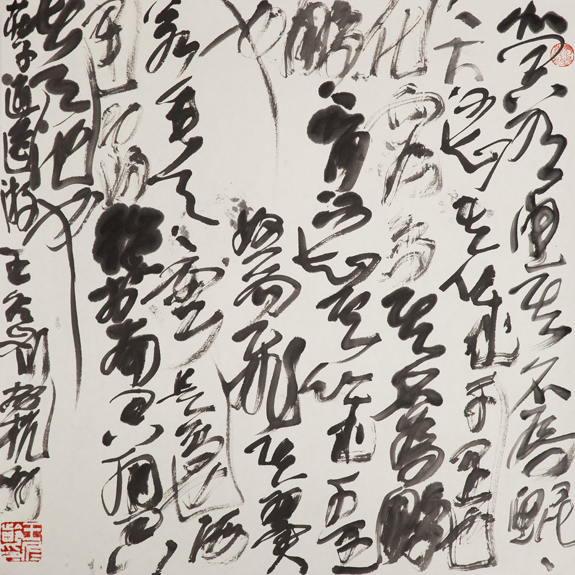 北冥有魚其名為鯤
之大不知其幾千里也
化而為鳥其名為鵬
鵬之背不知其幾千里
也怒而飛其翼
若垂天之雲是鳥也海
運則將徙於南冥南冥
者天池也
莊子逍遙游 王冬齡於杭州